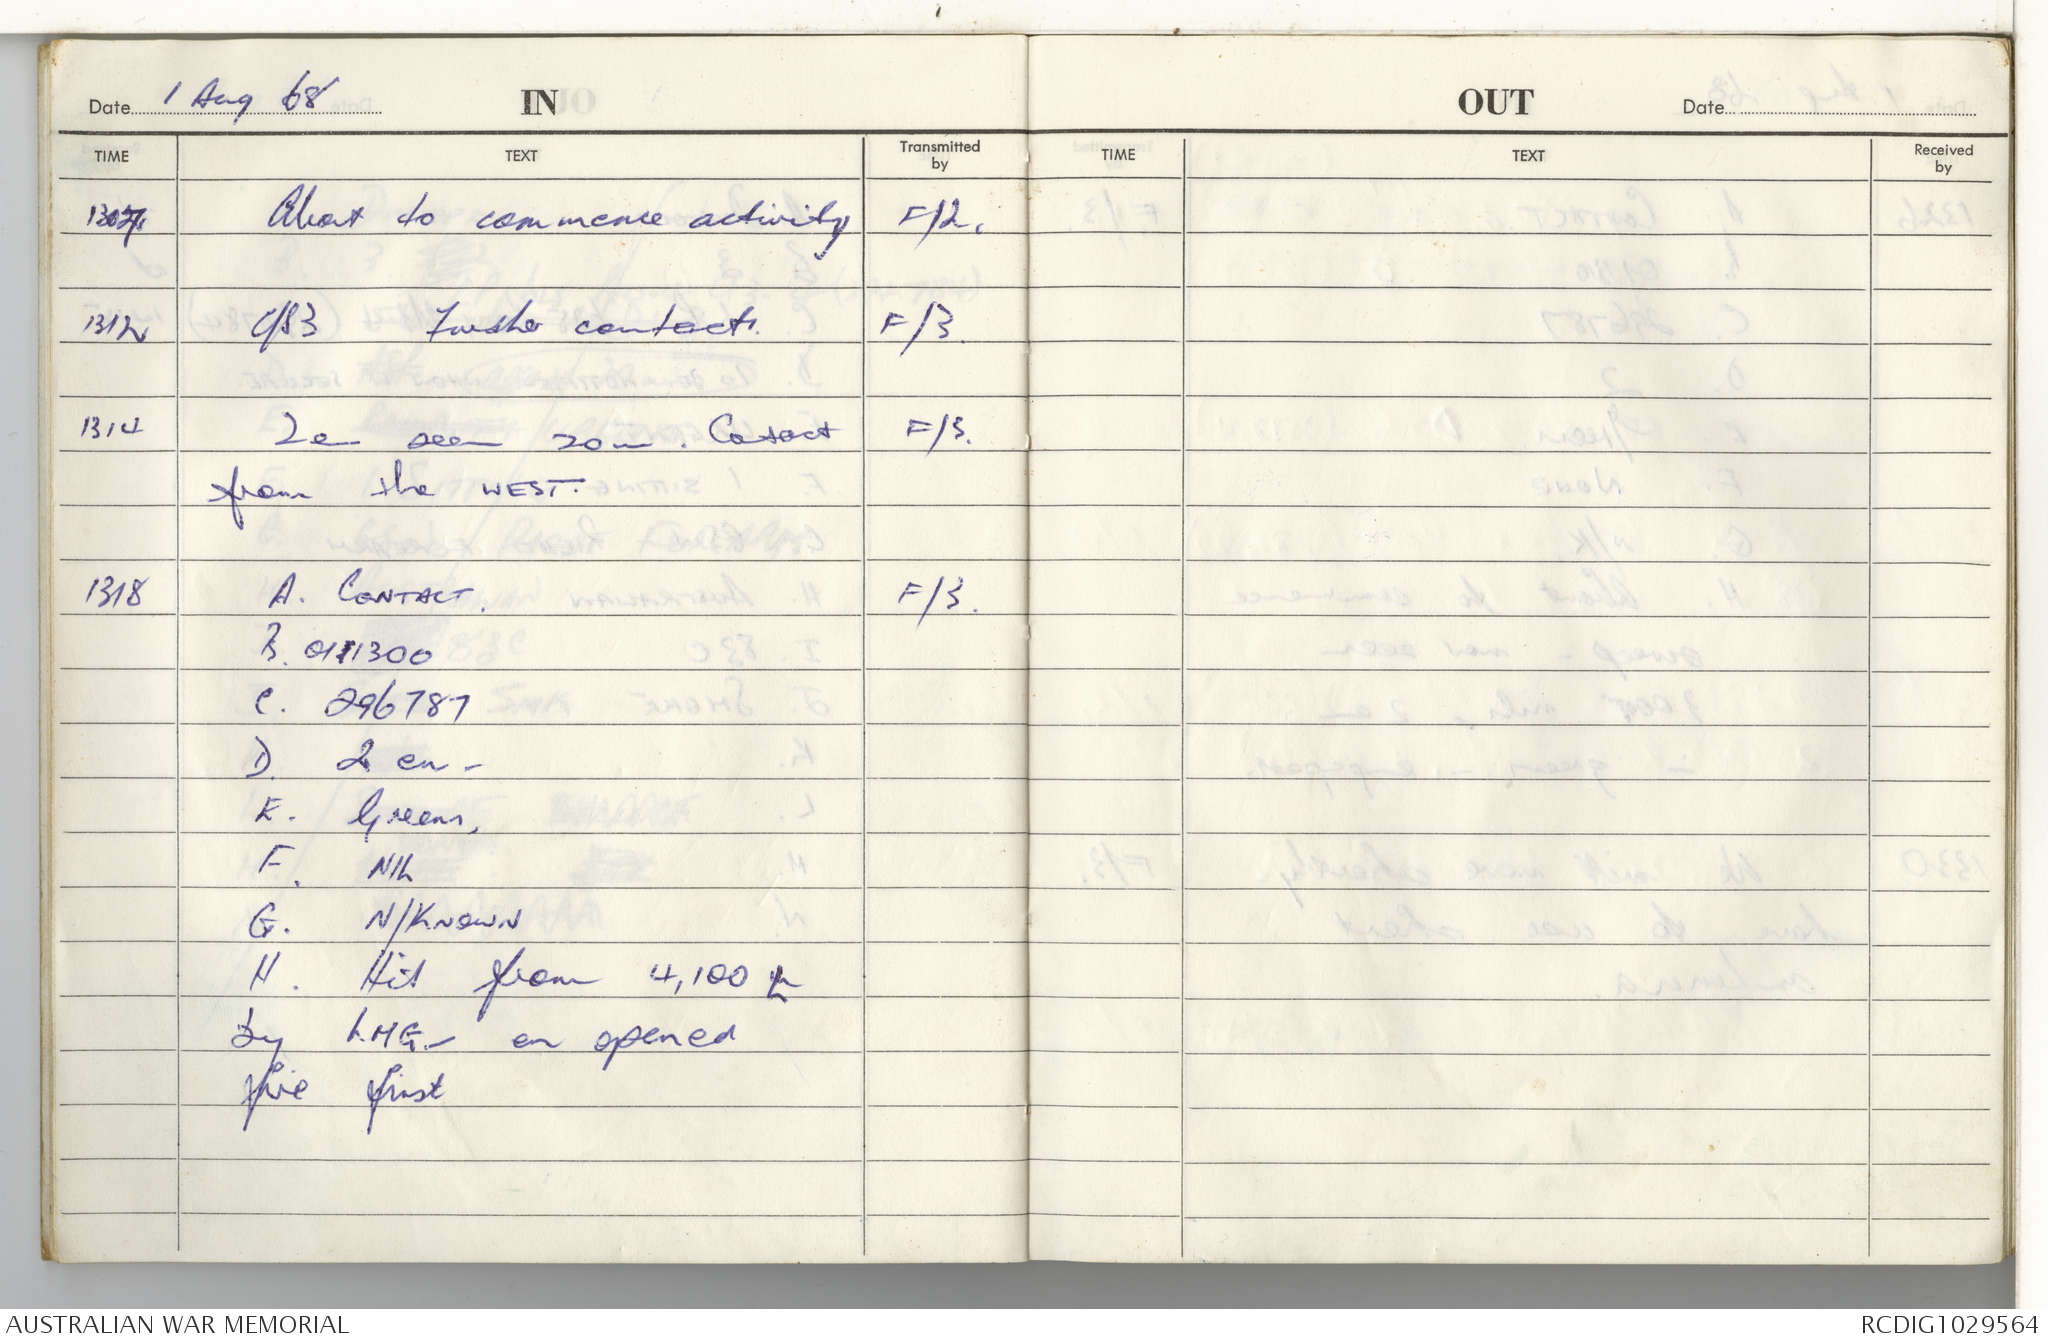 Date 1 Aug 68 IN
TIME TEXT Transmitted by
About to commence activity F/2.
1312 C/S3 Further contact. F/3.
1314 2 en seen 20 m. Contact F/3.
from the WEST.
1318 A. CONTACT. F/3.
B. 011300
C. 296787
D. 2 en -
E. Greens,
F. NIL
G. N/KNOWN
H. Hit from 4,100
by LMG - en opened
fire first
OUT Date
TIME TEXT Received by
AUSTRALIAN WAR MEMORIAL RCDIG1029564